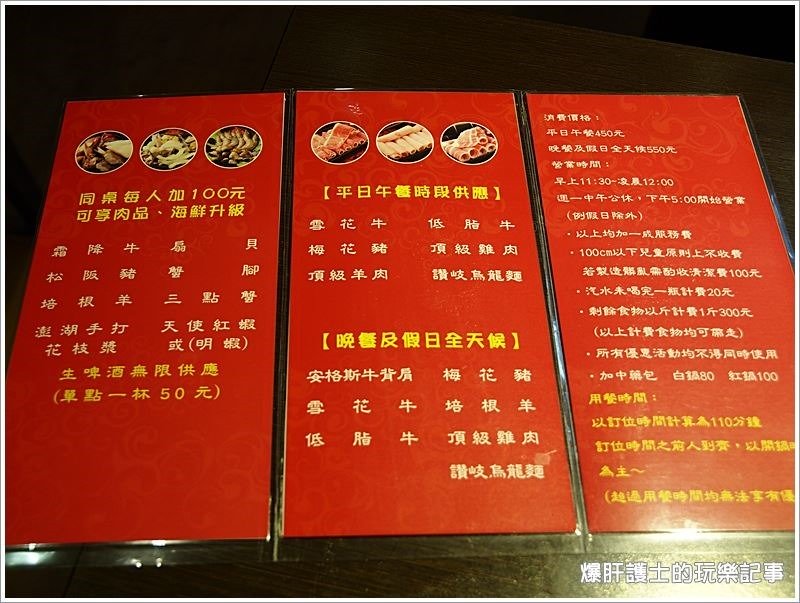 同桌每人加100元
可享肉品、海鮮升級
霜降牛 扇貝
松阪豬 蟹腳
培根羊 三點蟹
澎湖手打 天使紅蝦
花枝漿 或(明蝦)
生啤酒無限供應
(單點一杯50元)
【平日午餐時段供應】
雪花牛 低脂牛
梅花豬 頂級雞肉
頂級羊肉 讚岐烏龍麵
【晚餐及假日全天候】
安格斯牛背肩 梅花豬
雪花牛 培根羊
低脂牛 頂級雞肉
讚岐烏龍麵
消費價格：
平日午餐450元
晚餐及假日全天候550元
營業時間：
早上11:30-凌晨12:00
週一中午公休，下午5:00開始營業
(例假日除外)
·以上均加一成服務費
·100cm以下兒童原則上不收費
若製造髒亂需酌收清潔費100元
·汽水未喝完一瓶計費20元
·剩餘食物以斤計費1斤300元
(以上計費食物均可帶走)
·所有優惠活動均不得同時使用
·加中藥包 白鍋80 紅鍋100
用餐時間：
以訂位時間計算為110分鐘
訂位時間之前人到齊，以開鍋時
為主～
(超過用餐時間均無法享有優
爆肝護士的玩樂記事